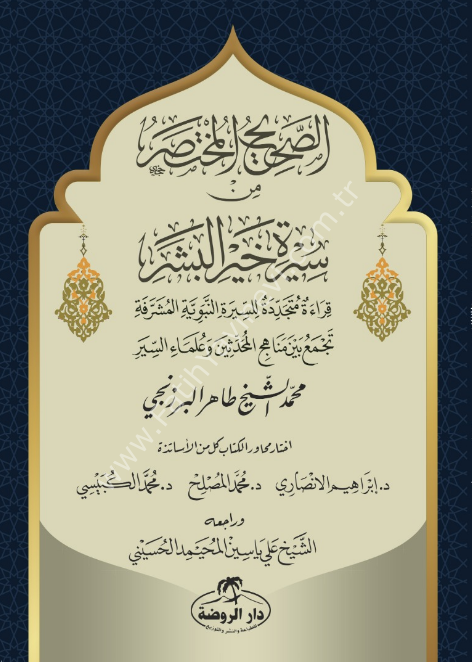 الصَّحِيحُ المُخْتَصَرُ
مِن
سِيرَةِ خَيْرِ البَشَرِ
قِرَاءَةٌ مُتَجَدِّدَةٌ لِلسِّيرَةِ النَّبَوِيَّةِ المُشَرَّفَةِ
تَجْمَعُ بَيْنَ مَنَاهِجِ المُحَدِّثِينَ وَعُلَمَاءِ السِّيَرِ
محمَّد الشَّيخ طاهر البرزنجي
اختار محاور الكتاب كل من الأساتذة
د. إبْرَاهِيم الانْصَارِي د. مُحَمَّد المُصْلِح د. مُحَمَّد الكُبَيْسِي
وراجعه
الشَّيْخ عَلِي يَاسِين المُحَيْمِد الحُسَيْنِي
دار الروضة
للطباعة والنشر والتوزيع
www.fatihyayinevi.com.tr